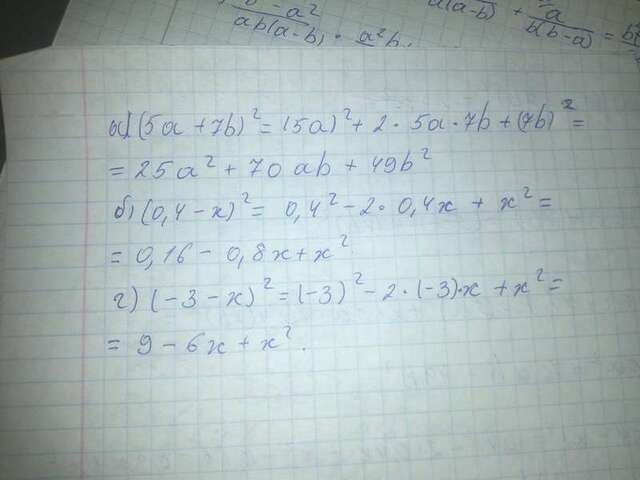 b - a²
ab(a-b) · a²b.
a(a-b) + a
b(b-a) =
а) (5a + 7b)² = (5a)² + 2 · 5a · 7b + (7b)² =
= 25a² + 70ab + 49b²
б) (0,4 - x)² = 0,4² - 2 · 0,4x + x² =
= 0,16 - 0,8x + x²
г) (-3 - x)² = (-3)² - 2 · (-3) · x + x² =
= 9 - 6x + x².